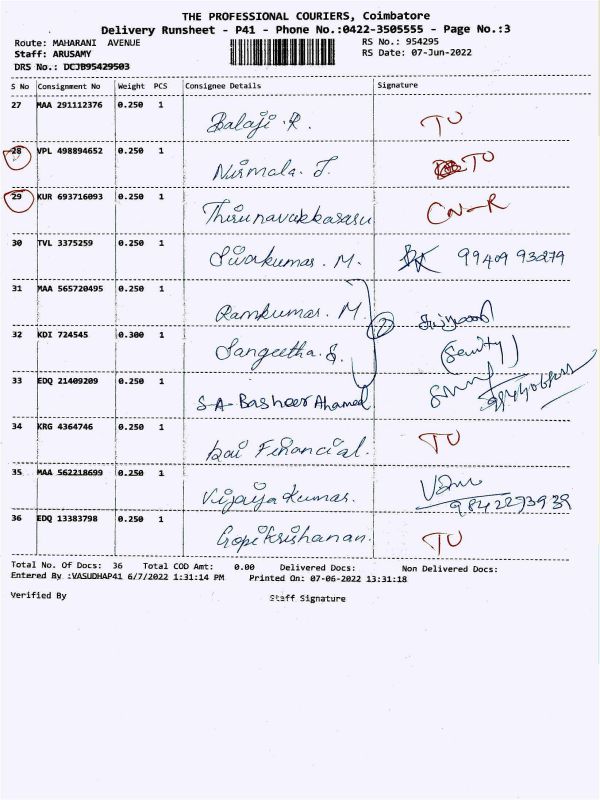 THE PROFESSIONAL COURIERS, Coimbatore
Delivery Runsheet - P41 - Phone No.:0422-3505555 - Page No.:3
Route: MAHARANI AVENUE RS No.: 954295
Staff: ARUSAMY RS Date: 07-Jun-2022
DRS No.: DCJB95429503
S No Consignment No Weight PCS Consignee Details Signature
27 MAA 291112376 0.250 1 Balaji. R. TO
28 VPL 498894652 0.250 1 Nirmala. J. TO
29 KUR 693716093 0.250 1 Thirunavukkarasu CN-R
30 TVL 3375259 0.250 1 Sivakumar. M. 99409 93279
31 MAA 565720495 0.250 1 Ramkumar. M.
32 KDI 724545 0.300 1 Sangeetha. S.
33 EDQ 21409209 0.250 1 S A Basheer Ahamed
34 KRG 4364746 0.250 1 Kai Financial. TO
35 MAA 562218699 0.250 1 Vijayakumar. 9842293939
36 EDQ 13383798 0.250 1 Gopi Krishanan. TO
Total No. Of Docs: 36 Total COD Amt: 0.00 Delivered Docs: Non Delivered Docs:
Entered By :VASUDHAP41 6/7/2022 1:31:14 PM Printed On: 07-06-2022 13:31:18
Verified By Staff Signature